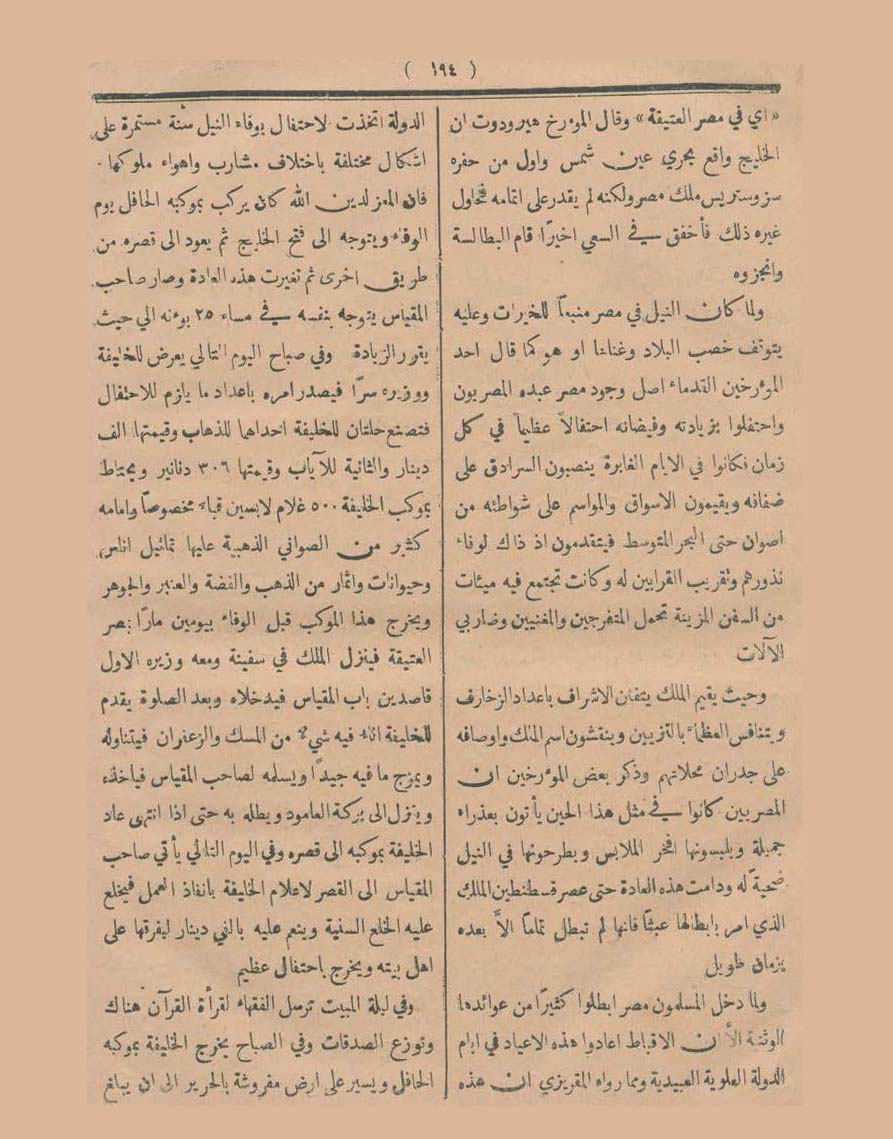 ( ١٩٤ )
« اي في مصر العتيقة » وقال المؤرخ هيرودوت ان
الخليج واقع بجري عين شمس واول من حفره
سزوستريس ملك مصر ولكنه لم يقدر على اتمامه فحاول
غيره ذلك فأخفق في السعي اخيرًا قام البطالسة
وانجزوه
ولما كان النيل في مصر منبعًا للخيرات وعليه
يتوقف خصب البلاد وغناها او هو كما قال احد
المؤرخين القدماء اصل وجود مصر عبده المصريون
واحتفلوا بزيادته وفيضانه احتفالاً عظيماً في كل
زمان فكانوا في الايام الغابرة ينصبون السرادق على
ضفافه ويقيمون الاسواق والمواسم على شواطئه من
اصوان حتى البحر المتوسط فيتقدمون اذ ذاك لوفاء
نذورهم وتقريب القرابين له وكانت تجتمع فيه ميئات
من السفن المزينة تحمل المتفرجين والمغنيين وضاربي
الآلات
وحيث يقيم الملك يتفنن الاشراف باعداد الزخارف
ويتنافس العظماء بالتزيين وينقشون اسم الملك واوصافه
على جدران محلاتهم وذكر بعض المؤرخين ان
المصريين كانوا في مثل هذا الحين يأتون بعذراء
جميلة ويلبسونها افخر الملابس ويطرحونها في النيل
ضحية له ودامت هذه العادة حتى عصر قسطنطين الملك
الذي امر بابطالها عبثًا فانها لم تبطل تمامًا الاَّ بعده
بزمان طويل
ولما دخل المسلمون مصر ابطلوا كثيرًا من عوائدها
الوثنية الاَّ ان الاقباط اعادوا هذه الاعياد في ايام
الدولة العلوية العبيدية ومما رواه المقريزي ان هذه
الدولة اتخذت لاحتفال بوفاء النيل سُنة مستمرة على
اشكال مختلفة باختلاف مشارب واهواء ملوكها .
فان المعز لدين الله كان يركب بموكبه الحافل يوم
الوفاء ويتوجه الى فتح الخليج ثم يعود الى قصره من
طريق اخرى ثم تغيرت هذه العادة وصار صاحب
المقياس يتوجه بنفسه في مساء ٢٥ بوءنه الي حيث
يقرر الزيادة وفي صباح اليوم التالي يعرض للخليفة
ووزيره سرًّا فيصدر امره باعداد ما يلزم للاحتفال
فتصنع حلتان للخليفة احداها للذهاب وقيمتها الف
دينار والثانية للآياب وقيمتها ٣٠٦ دنانير ويحتاط
بموكب الخليفة ٥٠٠ غلام لابسين قباء مخصوصاً وامامه
كثير من الصواني الذهبية عليها تماثيل اناس
وحيوانات واثمار من الذهب والفضة والعنبر والجوهر
ويخرج هذا الموكب قبل الوفاء بيومين مارًّا بمصر
العتيقة فينزل الملك في سفينة ومعه وزيره الاول
قاصدين باب المقياس فيدخلاه وبعد الصلوة يقدم
للخليفة اناء فيه شيء من المسك والزعفران فيتناوله
ويمزج ما فيه جيدًا ويسلمه لصاحب المقياس فياخذه
وينزل الى بركة العامود ويطله به حتى اذا انتهى عاد
الخليفة بموكبه الى قصره وفي اليوم التالي يأتي صاحب
المقياس الى القصر لاعلام الخليفة بانفاذ العمل فيخلع
عليه الخلع السنية وينعم عليه بالفي دينار ليفرقها على
اهل بيته ويخرج باحتفال عظيم
وفي ليلة المبيت ترسل الفقهاء لقرأة القرآن هناك
وتوزع الصدقات وفي الصباح يخرج الخليفة بموكبه
الحافل ويسير على ارض مفروشة بالحرير الى ان يبلغ